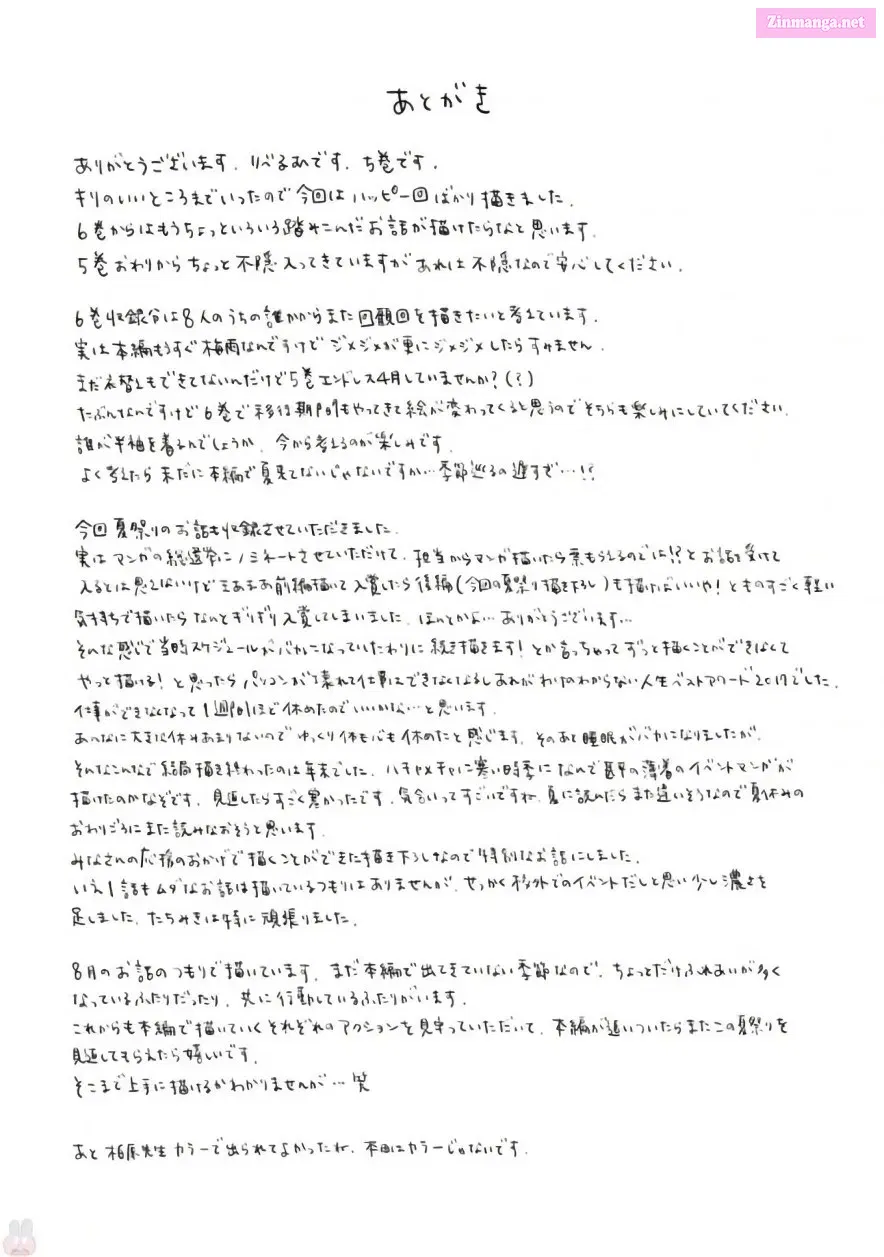 Zinmanga.net
あとがき
ありがとうございます。りべるむです。5巻です。
キリのいいところまでいったので今回はハッピー回ばかり描きました。
6巻からはもうちょっといろいろ踏みこんだお話が描けたらなと思います。
5巻おわりからちょっと不隠入ってきていますがあれは不隠なので安心してください。
6巻収録分は8人のうちの誰かからまた回観回を描きたいと考えています。
実は本編もうすぐ梅雨なんですけどジメジメが更にジメジメしたらすみません。
まだ衣替えもできてないんだけど5巻エンドレス4月していませんか?(?)
たぶんなんですけど6巻で移行期間もやってきて絵が変わってくると思うのでそちらも楽しみにしていてください。
誰が半袖を着るんでしょうか。今から考えるのが楽しみです。
よく考えたら未だに本編で夏来てないじゃないですか…季節巡るの遅すぎ…!?
今回夏祭りのお話も収録させていただきました。
実はマンガの総選挙にノミネートさせていただけて、担当からマンガ描いたら票もらえるのでは!?とお話を受けて
入るとは思えないけどまあまあ前編描いて入賞したら後編(今回の夏祭り描き下ろし)も描けばいいや!とものすごく軽い
気持ちで描いたらなんとぎりぎり入賞してしまいました。ほんとかよ…ありがとうございます…
そんな感じで当時スケジュールがバカになっていたわりに続き描きます!とか言っちゃってずっと描くことができなくて
やっと描ける!と思ったらパソコンが壊れて仕事はできなくなるしあれがわけのわからない人生ベストアワード2017でした。
仕事ができなくなって1週間ほど休めたのでいいかな…と思います。
あんなに大きな休みあまりないのでゆっくり体も心も休めたと感じます。そのあと睡眠がバカになりましたが。
そんなこんなで結局描き終わったのは年末でした。ハチャメチャに寒い時季になんで甚平の薄着のイベントマンガが
描けたのかなぞです。見返したらすごく寒かったです。気合いってすごいですね。夏に読んだらまた違いそうなので夏休みの
おわりごろにまた読みなおそうと思います。
みなさんの応援のおかげで描くことができた描き下ろしなので特別なお話にしました。
いえ1話もムダなお話は描いているつもりはありませんが、せっかく校外でのイベントだしと思い少し濃さを
足しました。たちみきは特に頑張りました。
8月のお話のつもりで描いています。まだ本編で出てきていない季節なので、ちょっとだけふれあいが多く
なっているふたりだったり、共に行動しているふたりがいます。
これからも本編で描いていくそれぞれのアクションを見守っていただいて、本編が追いついたらまたこの夏祭りを
見返してもらえたら嬉しいです。
そこまで上手に描けるかわかりませんが…笑
あと柏原先生カラーで出られてよかったね。本田はカラーじゃないです。